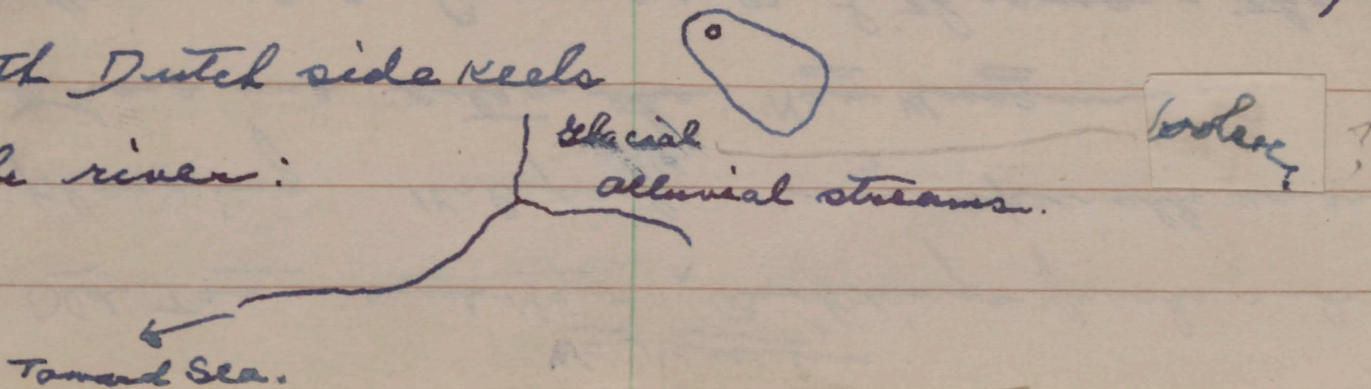 th Dutch side keels
river:
Glacial
alluvial streams.
Toward Sea.